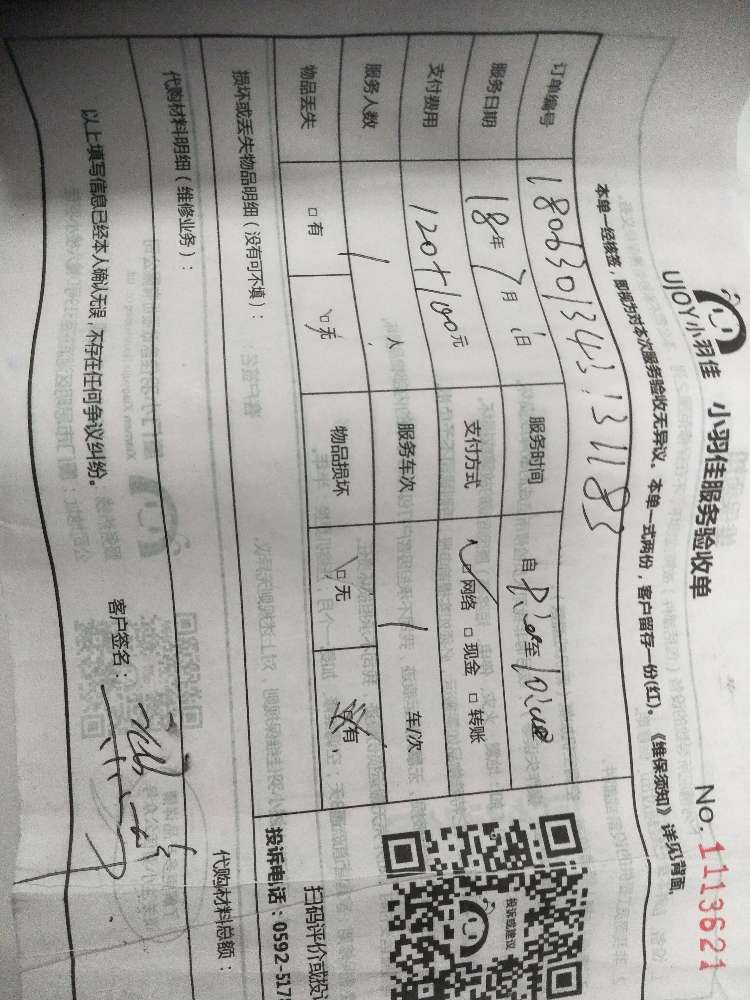 UJOY小羽佳 小羽佳服务验收单 No. 1113621
本单一经核签，即视为对本次服务验收无异议。本单一式两份，客户留存一份(红)。《维保须知》详见背面。
订单编号 1806301343131183
服务日期 18年7月1日 服务时间 自 至
支付费用 120+100元 支付方式 ☑网络 □现金 □转账
服务人数 1人 服务车次 1车/次
物品丢失 □有 □无 物品损坏 □无 □有
损坏或丢失物品明细（没有可不填）：
代购材料明细（维修业务）： 代购材料总额：
以上填写信息已经本人确认无误，不存在任何争议纠纷。
客户签名：
投诉或建议
扫码评价或投
投诉电话：0592-517